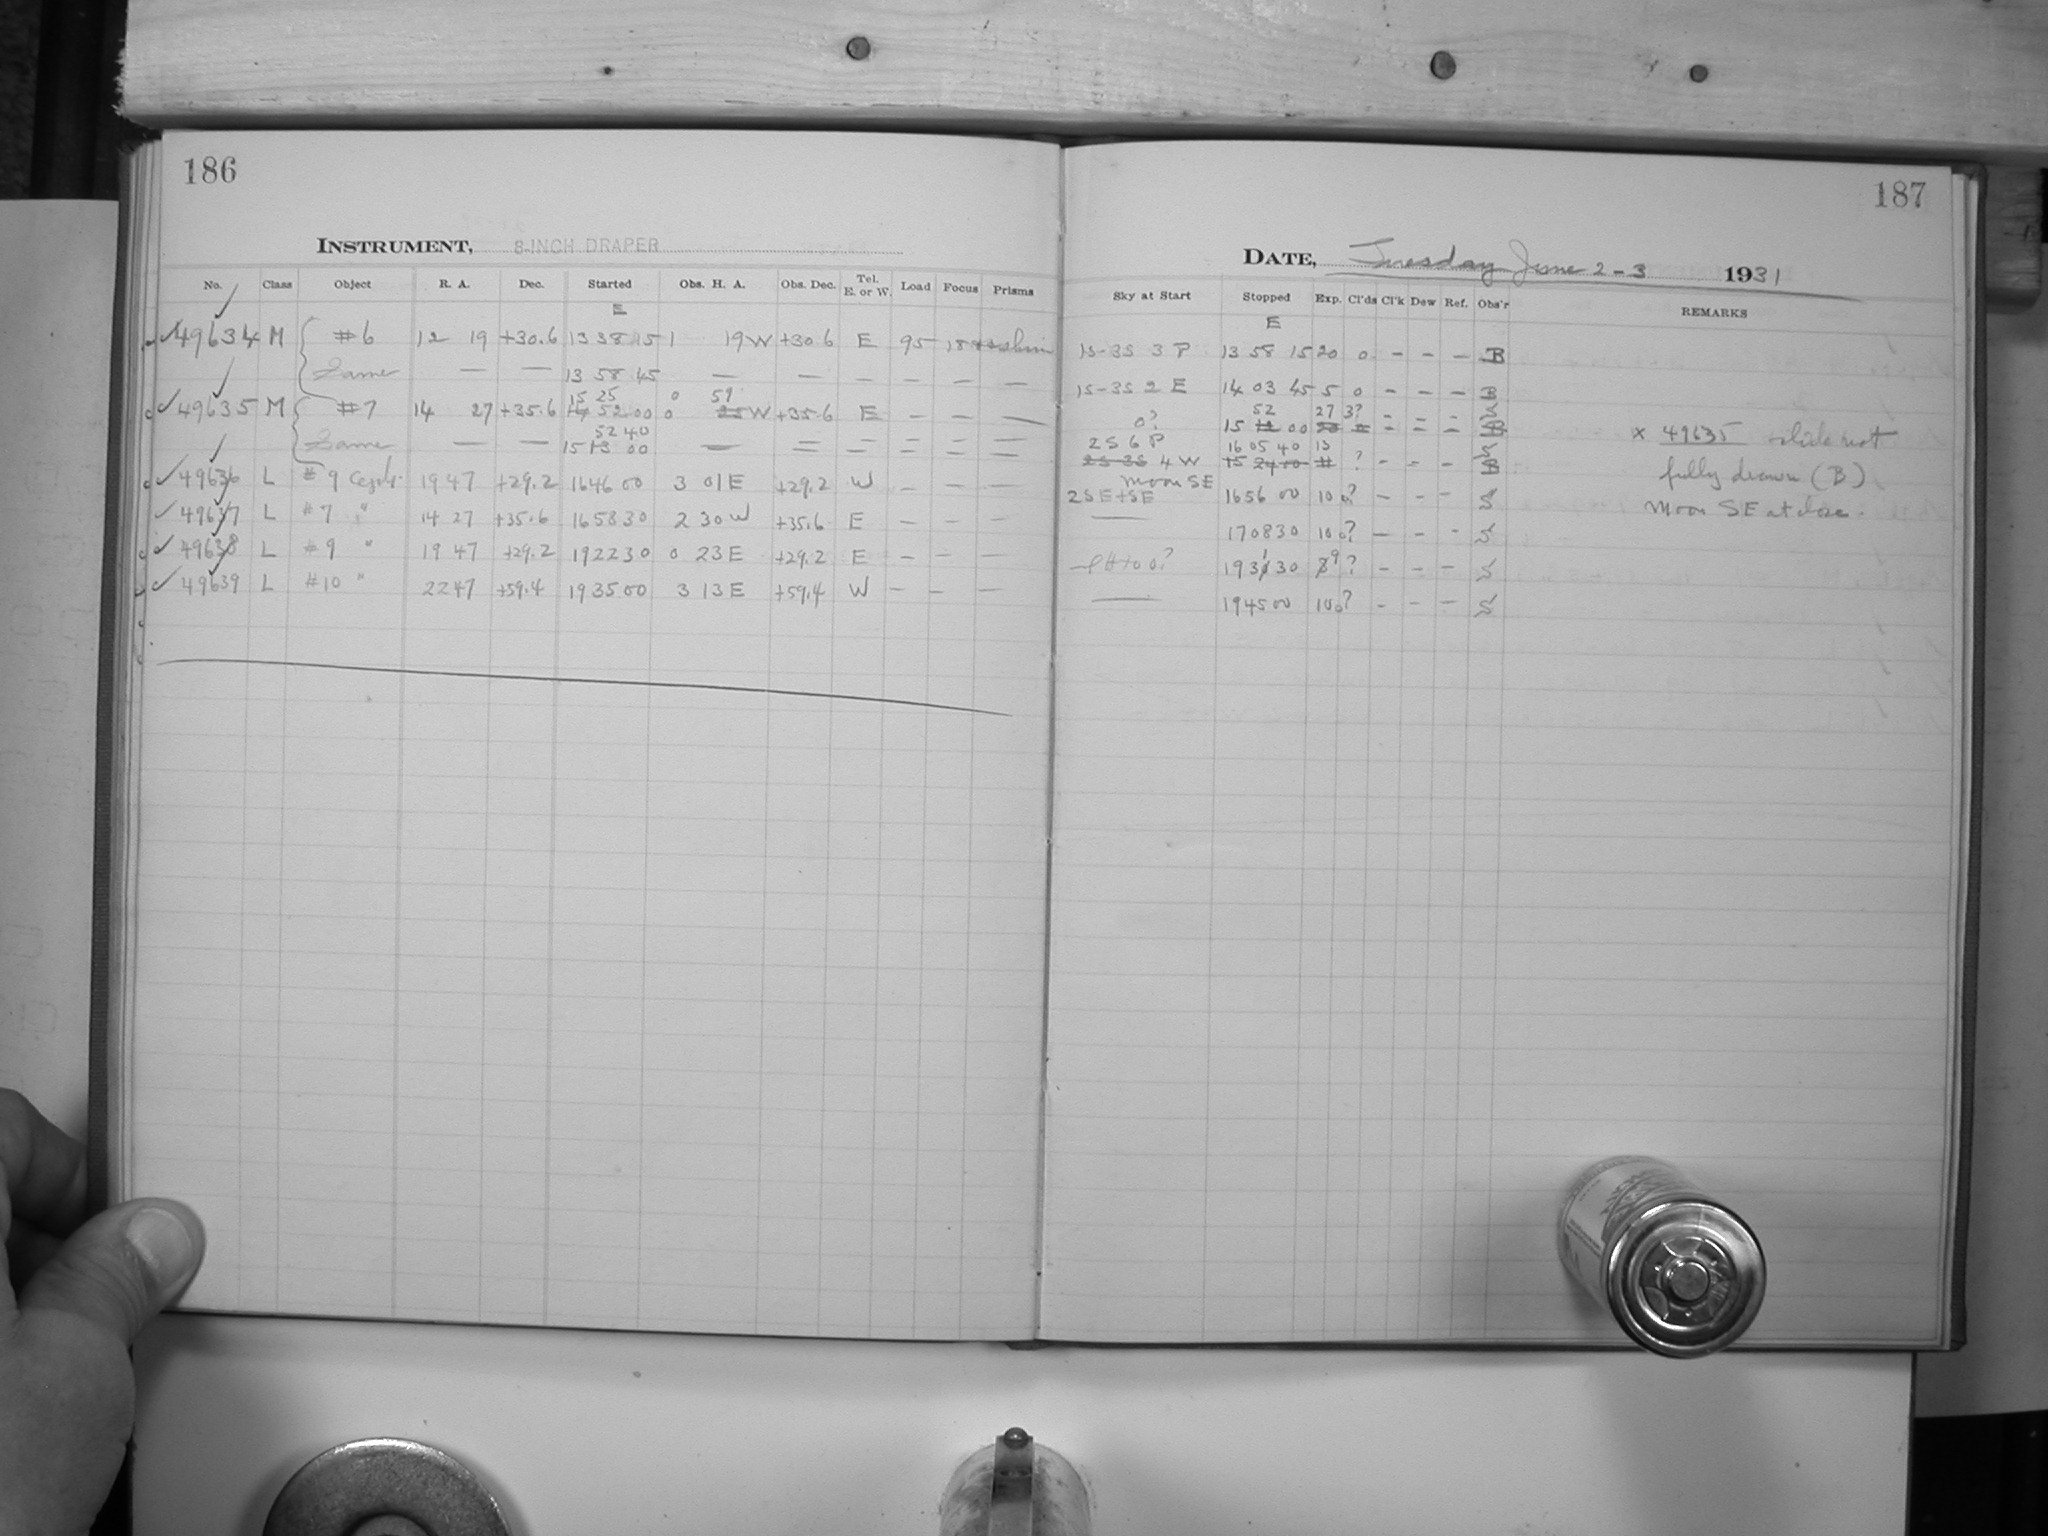 186
INSTRUMENT, 8-INCH DRAPER
No. Class Object R. A. Dec. Started Obs. H. A. Obs. Dec. Tel. E. or W. Load Focus Prisms
E
49634 M #6 12 19 +30.6 13 38 15 1 19 W +30 6 E 95
Same — — 13 58 45 — — — — — —
15 25 0 59
49635 M #7 14 27 +35.6 14 52 00 0 25 W +35.6 E — — —
52 40
Same — — 15 13 00 — = = = = =
49636 L #9 19 47 +29.2 16 46 00 3 01 E +29.2 W — — —
49637 L #7 " 14 27 +35.6 16 58 30 2 30 W +35.6 E — — —
49638 L #9 " 19 47 +29.2 19 22 30 0 23 E +29.2 E — — —
49639 L #10 " 22 47 +59.4 19 35 00 3 13 E +59.4 W — — —
187
DATE, Tuesday June 2-3 1931
Sky at Start Stopped Exp. Cl'ds Cl'k Dew Ref. Obs'r REMARKS
E
1S-3S 3 P 13 58 15 20 0 — — — B
1S-3S 2 E 14 03 45 5 0 — — — B
52 27 3? S
0? 15 12 00 20 = = = = B
2S 6 P 16 05 40 13 S
2S 3S 4 W 15 24 00 11 ? - - - B
x 49635 slide not
fully drawn (B)
Moon SE at close.
Moon SE
2SE+SE 16 56 00 10 0? — — — S
— 17 08 30 10 0? — — — S
19 31 30 9 ? — — — S
— 19 45 00 10 0? — — — S